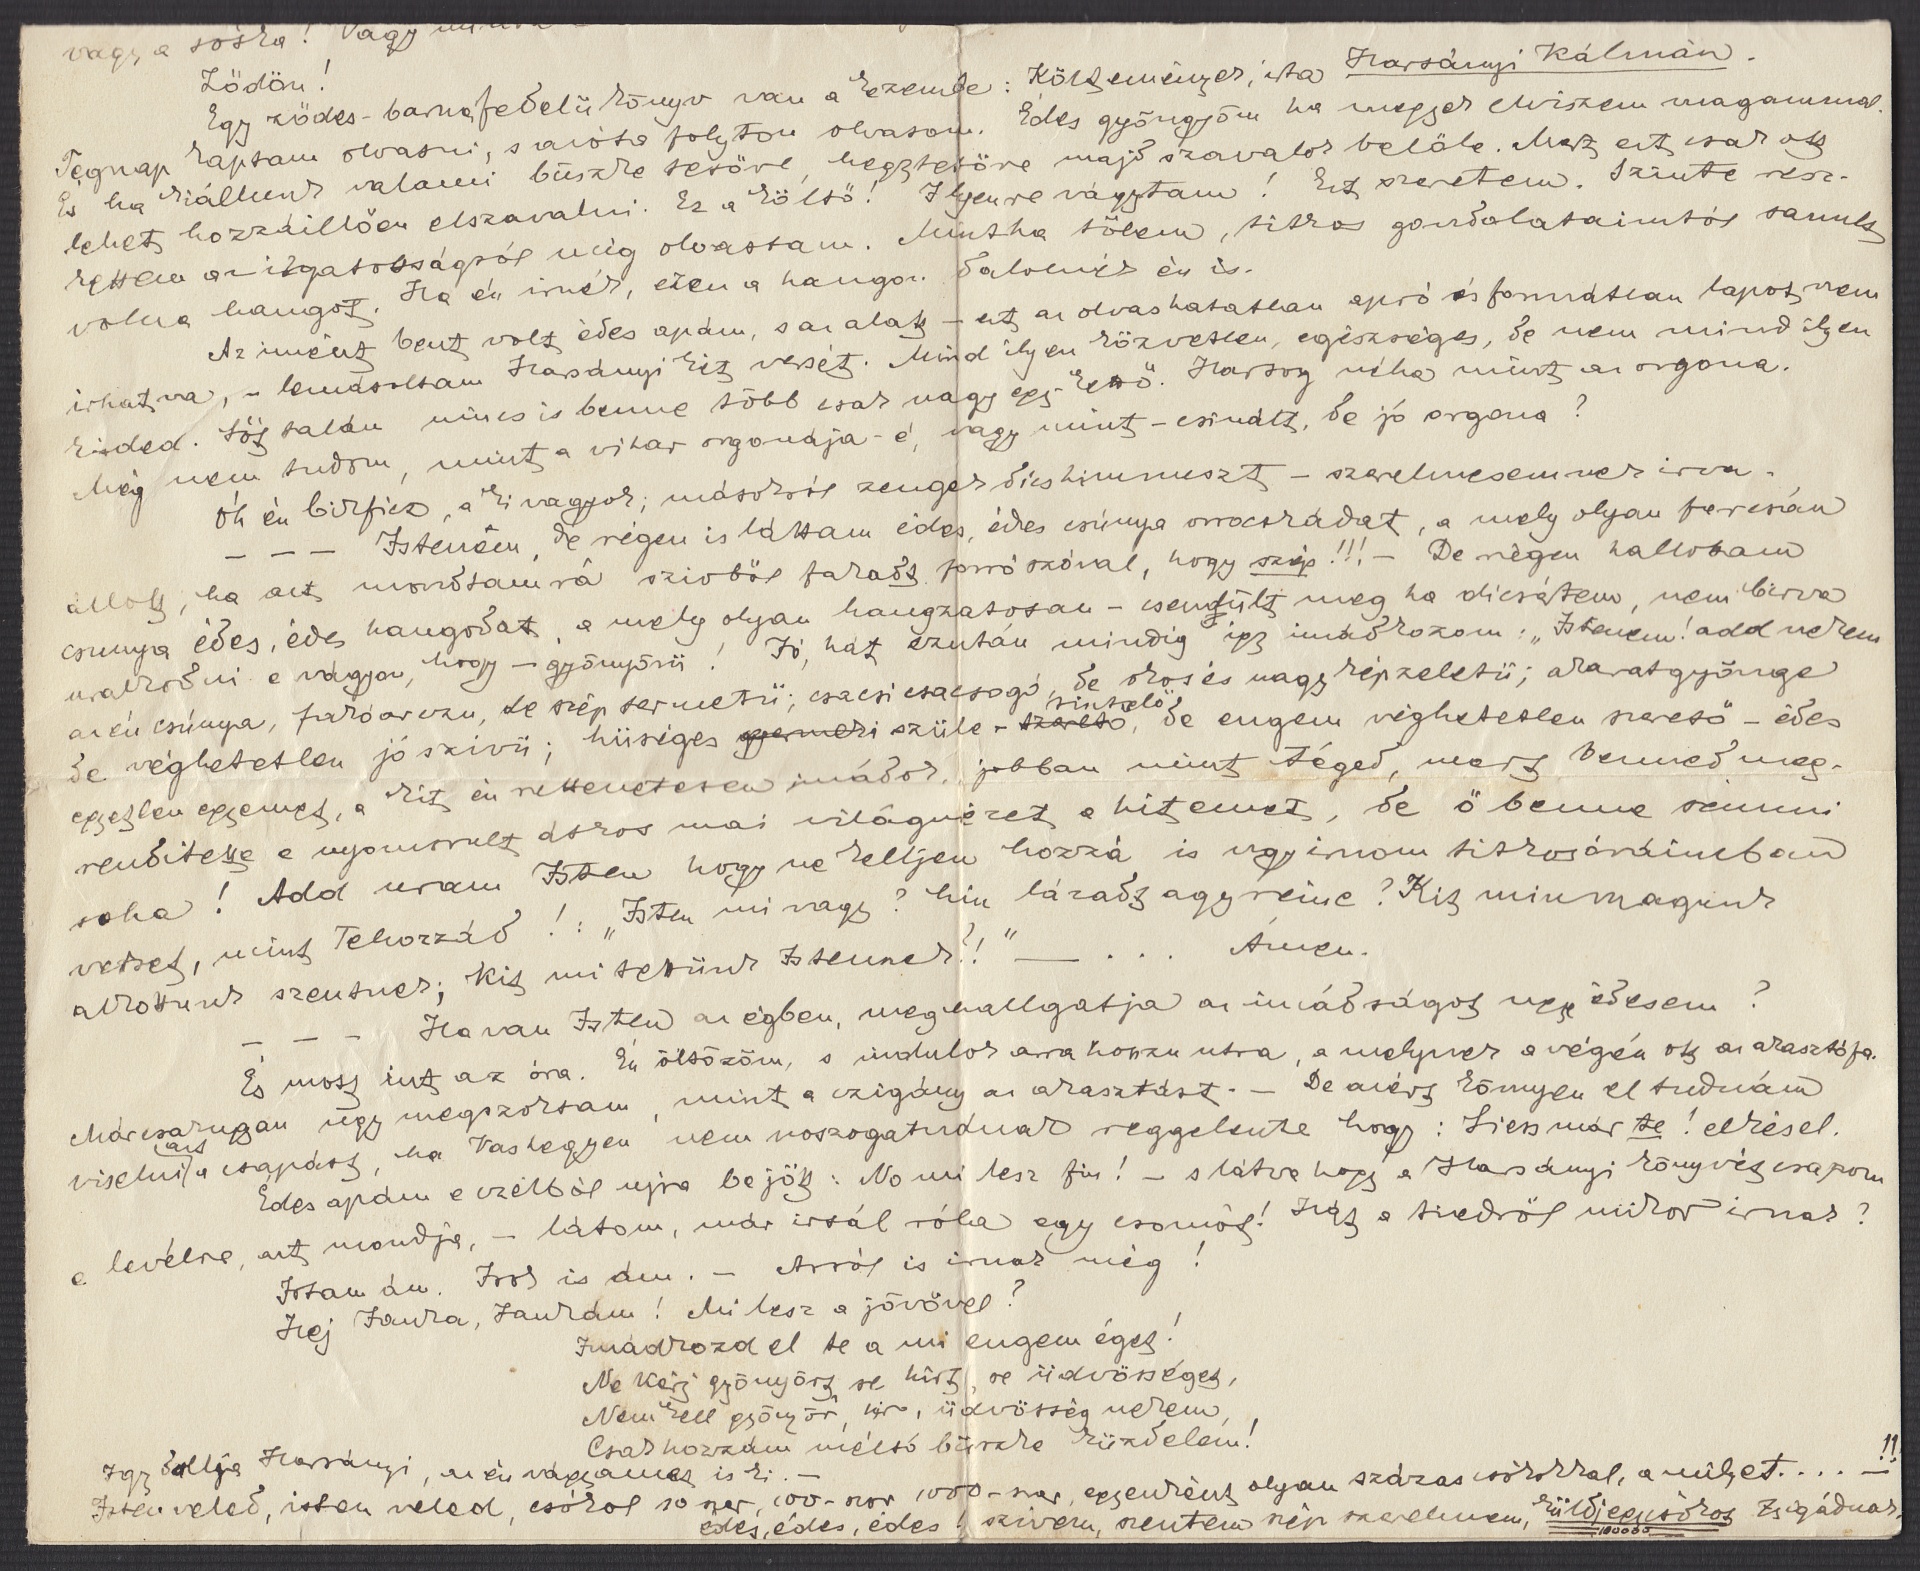 vagy a sóska! Vagy
Zödön!
Egy zödes-barnafedelü könyv van a kezembe: Költemények, irta Harsányi Kálmán.
Tegnap kaptam olvasni, s azóta folyton olvasom. Édes gyöngyöm ha megyek elviszem magammal.
És ha kiállunk valami büszke tetőre, hegytetőre majd szavalok belőle. Mert ezt csak ott
lehet hozzáillően elszavalni. Ez a költő! Ilyenre vágytam! Ezt szeretem. Szinte resz-
kettem az izgatottságtól mig olvastam. Mintha tőlem, titkos gondolataimtól tanult
volna hangot. Ha én irnék, ezen a hangon dalolnék én is.
Az imént bent volt édes apám, s az alatt - ezt az olvashatatlan apró és formátlan lapot nem
irhatva, - lemásoltam Harsányi két versét. Mind ilyen közvetlen, egészséges, de nem mind ilyen
kisded. Sőt talán nincs is benne több csak vagy egy-kettő. Harsog néha mint az orgona.
Még nem tudom, mint a vihar orgonája-é, vagy mint - csinált, de jó orgona?
Óh én birficz, a ki vagyok; másokról zengek dicshimnuszt - szerelmesemnek irva.
- - - Istenem, de régen is láttam édes, édes csúnya orrocskádat, a mely olyan ferisán
állott, ha azt mondtam rá szivből fakadt forró szóval, hogy szép!!! - De régen hallottam
csunya édes, édes hangodat, a mely olyan hangzatosan - csendült meg ha dicsértem, nem birva
uralkodni e vágyon, hogy - gyönyörü! Jó, hát ezután mindig igy imádkozom: "Istenem! add nekem
az én csúnya, fakóarczu, de szép termetü; csacsi csacsogó, de okos és nagy képzeletü; akaratgyönge
de véghetetlen jó szivü; hüséges gyermeki szüle - szerető, de engem véghetetlen szerető - édes
egyetlen egyemet, a kit én rettenetesen imádok, jobban mint Téged, mert benned meg-
renditette e nyomorult átkos mai világnézet a hitemet, de ő benne semmi
soha! Add uram Isten hogy ne kelljen hozzá is ugy irnom titkos óráimban
verset, mint Tehozzád!: "Isten mi vagy? hiu lázadt agy réme? Kit minmagunk
alkottunk szentnek; kit mi tettünk Istennek?!" — . . . Ámen.
- - - Ha van Isten az égben, meghallgatja az imádságot ugye édesem?
És most int az óra. Én öltözöm, s indulok arra hosszu utra, a melynek a végén ott az akasztófa.
Már csakugyan ugy megszoktam, mint a czigány az akasztást. - De azért könnyen el tudnám
viselni azt a csapást, ha Vashegyen nem noszogatnának reggelente hogy: Siess már te! elkésel.
Édes apám e czélból ujra bejött: No mi lesz fiu! - s látva hogy a Harsányi könyvét csapom
a levélre, azt mondja, - látom, már irtál róla egy csomót! Hát a tiedről mikor irnak?
Irtam ám. Irok is ám. - Arról is irnak még!
Hej Janka, Jankám! Mi lesz a jövővel?
Imádkozd el te a mi engem éget!
Ne kérj gyönyört se hirt, se üdvösséget,
Nem kell gyönyör, hir, üdvösség nekem,
Csak hozzám méltó büszke küzdelem!
Igy dallja Harsányi, az én vágyamat is ki. -
Isten veled, isten veled, csókol 10-szer, 100-szor 1000-szer, egyenként olyan százas csókokkal, a milyet.... —!!
édes, édes, édes! szivem, szentem szép szerelmem, küldj egy csókot Zsigádnak.
100000